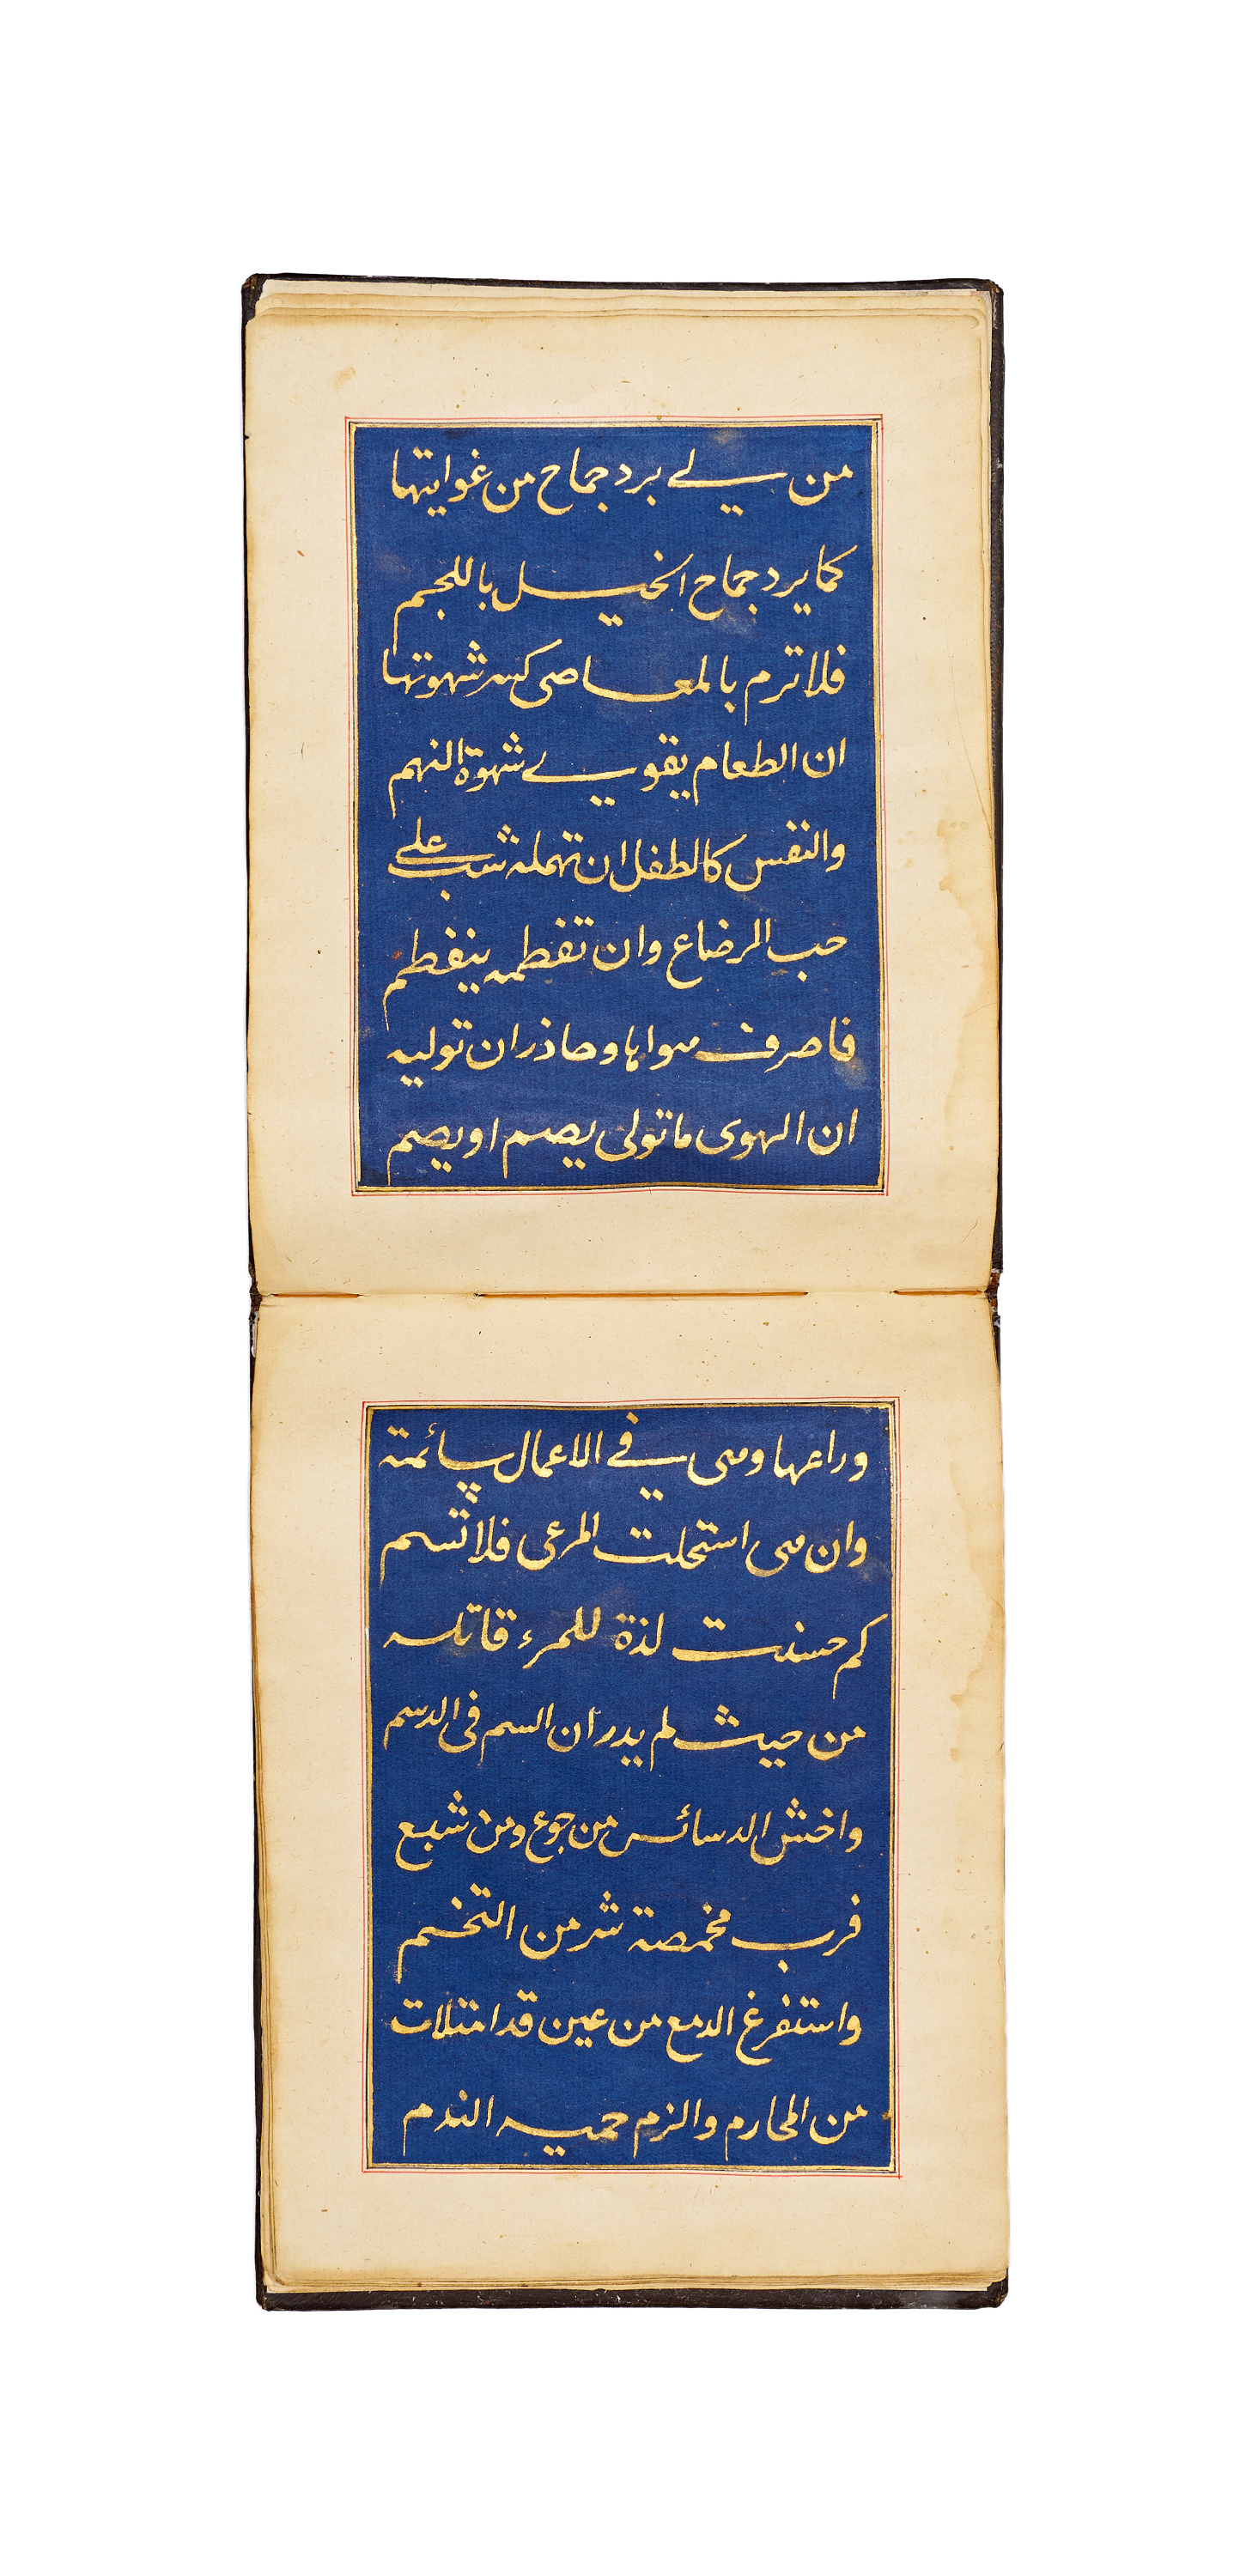 من لي برد جماح من غوايتها
كما يرد جماح الخيل باللجم
فلا ترم بالمعاصي كسر شهوتها
ان الطعام يقوي شهوة النهم
والنفس كالطفل ان تهمله شب علي
حب الرضاع وان تفطمه ينفطم
فاصرف هواها وحاذر ان توليه
ان الهوى ما تولى يصم او يصم
وراعها وهى في الاعمال سائمة
وان هى استحلت المرعى فلا تسم
كم حسنت لذة للمرء قاتله
من حيث لم يدر ان السم فى الدسم
واخش الدسائس من جوع ومن شبع
فرب مخمصة شر من التخم
واستفرغ الدمع من عين قد امتلات
من المحارم والزم حميه الندم